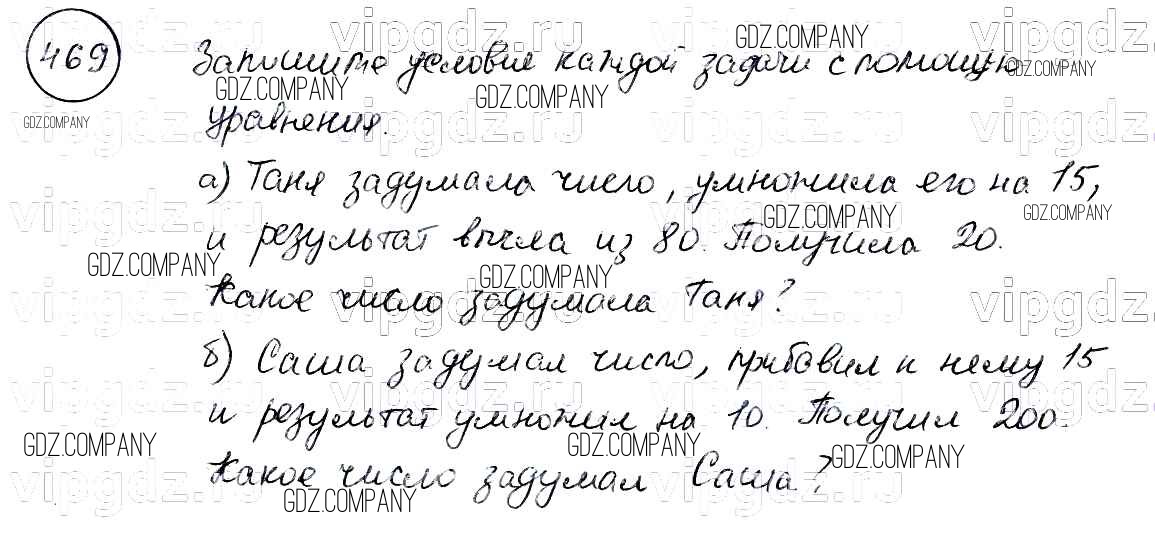 469
Запишите условия каждой задачи с помощью
уравнения.
а) Таня задумала число, умножила его на 15,
и результат вычла из 80. Получила 20.
Какое число задумала Таня?
б) Саша задумал число, прибавил к нему 15
и результат умножил на 10. Получил 200.
Какое число задумал Саша?